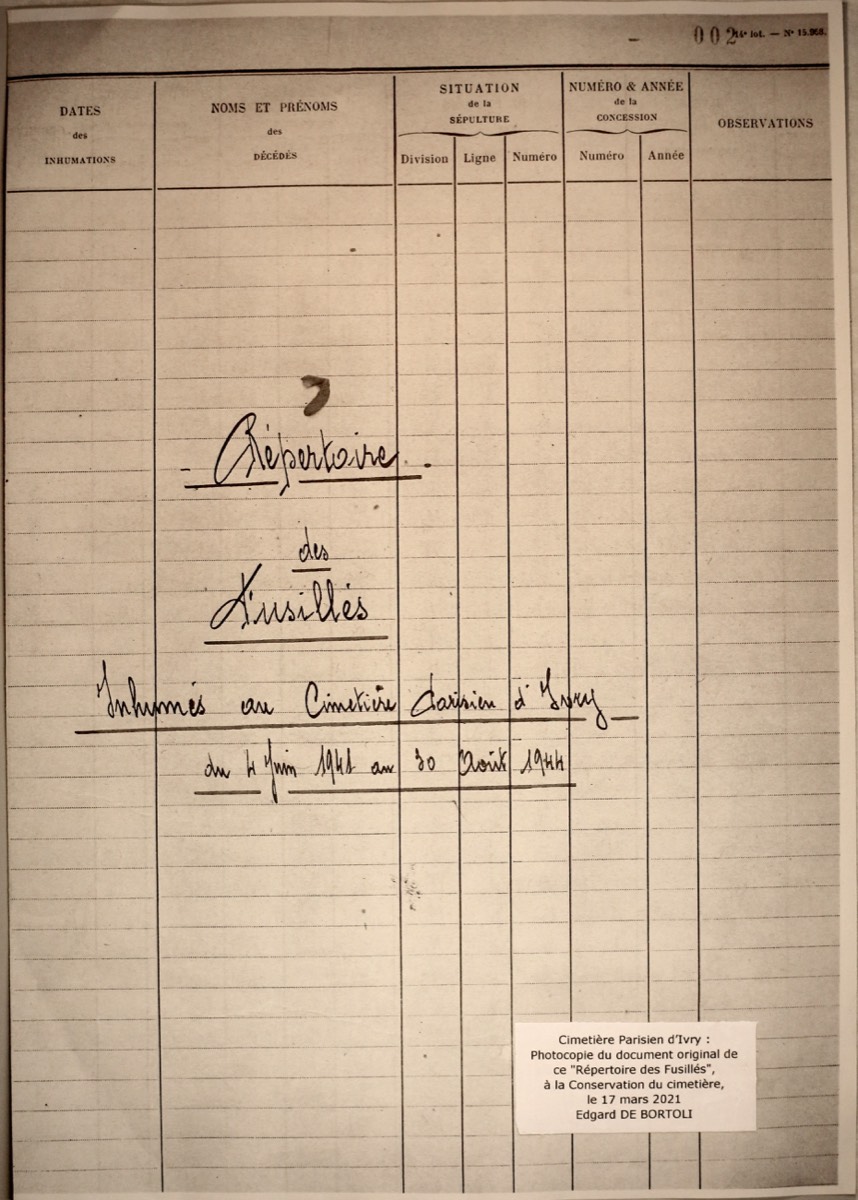 002 14e lot. — N° 15.968.
DATES
des
INHUMATIONS
NOMS ET PRÉNOMS
des
DÉCÉDÉS
SITUATION
de la
SÉPULTURE
Division Ligne Numéro
NUMÉRO & ANNÉE
de la
CONCESSION
Numéro Année
OBSERVATIONS
- Répertoire -
des
Fusillés
Inhumés au Cimetière Parisien d'Ivry
du 4 Juin 1941 au 30 Août 1944
Cimetière Parisien d'Ivry :
Photocopie du document original de
ce "Répertoire des Fusillés",
à la Conservation du cimetière,
le 17 mars 2021
Edgard DE BORTOLI